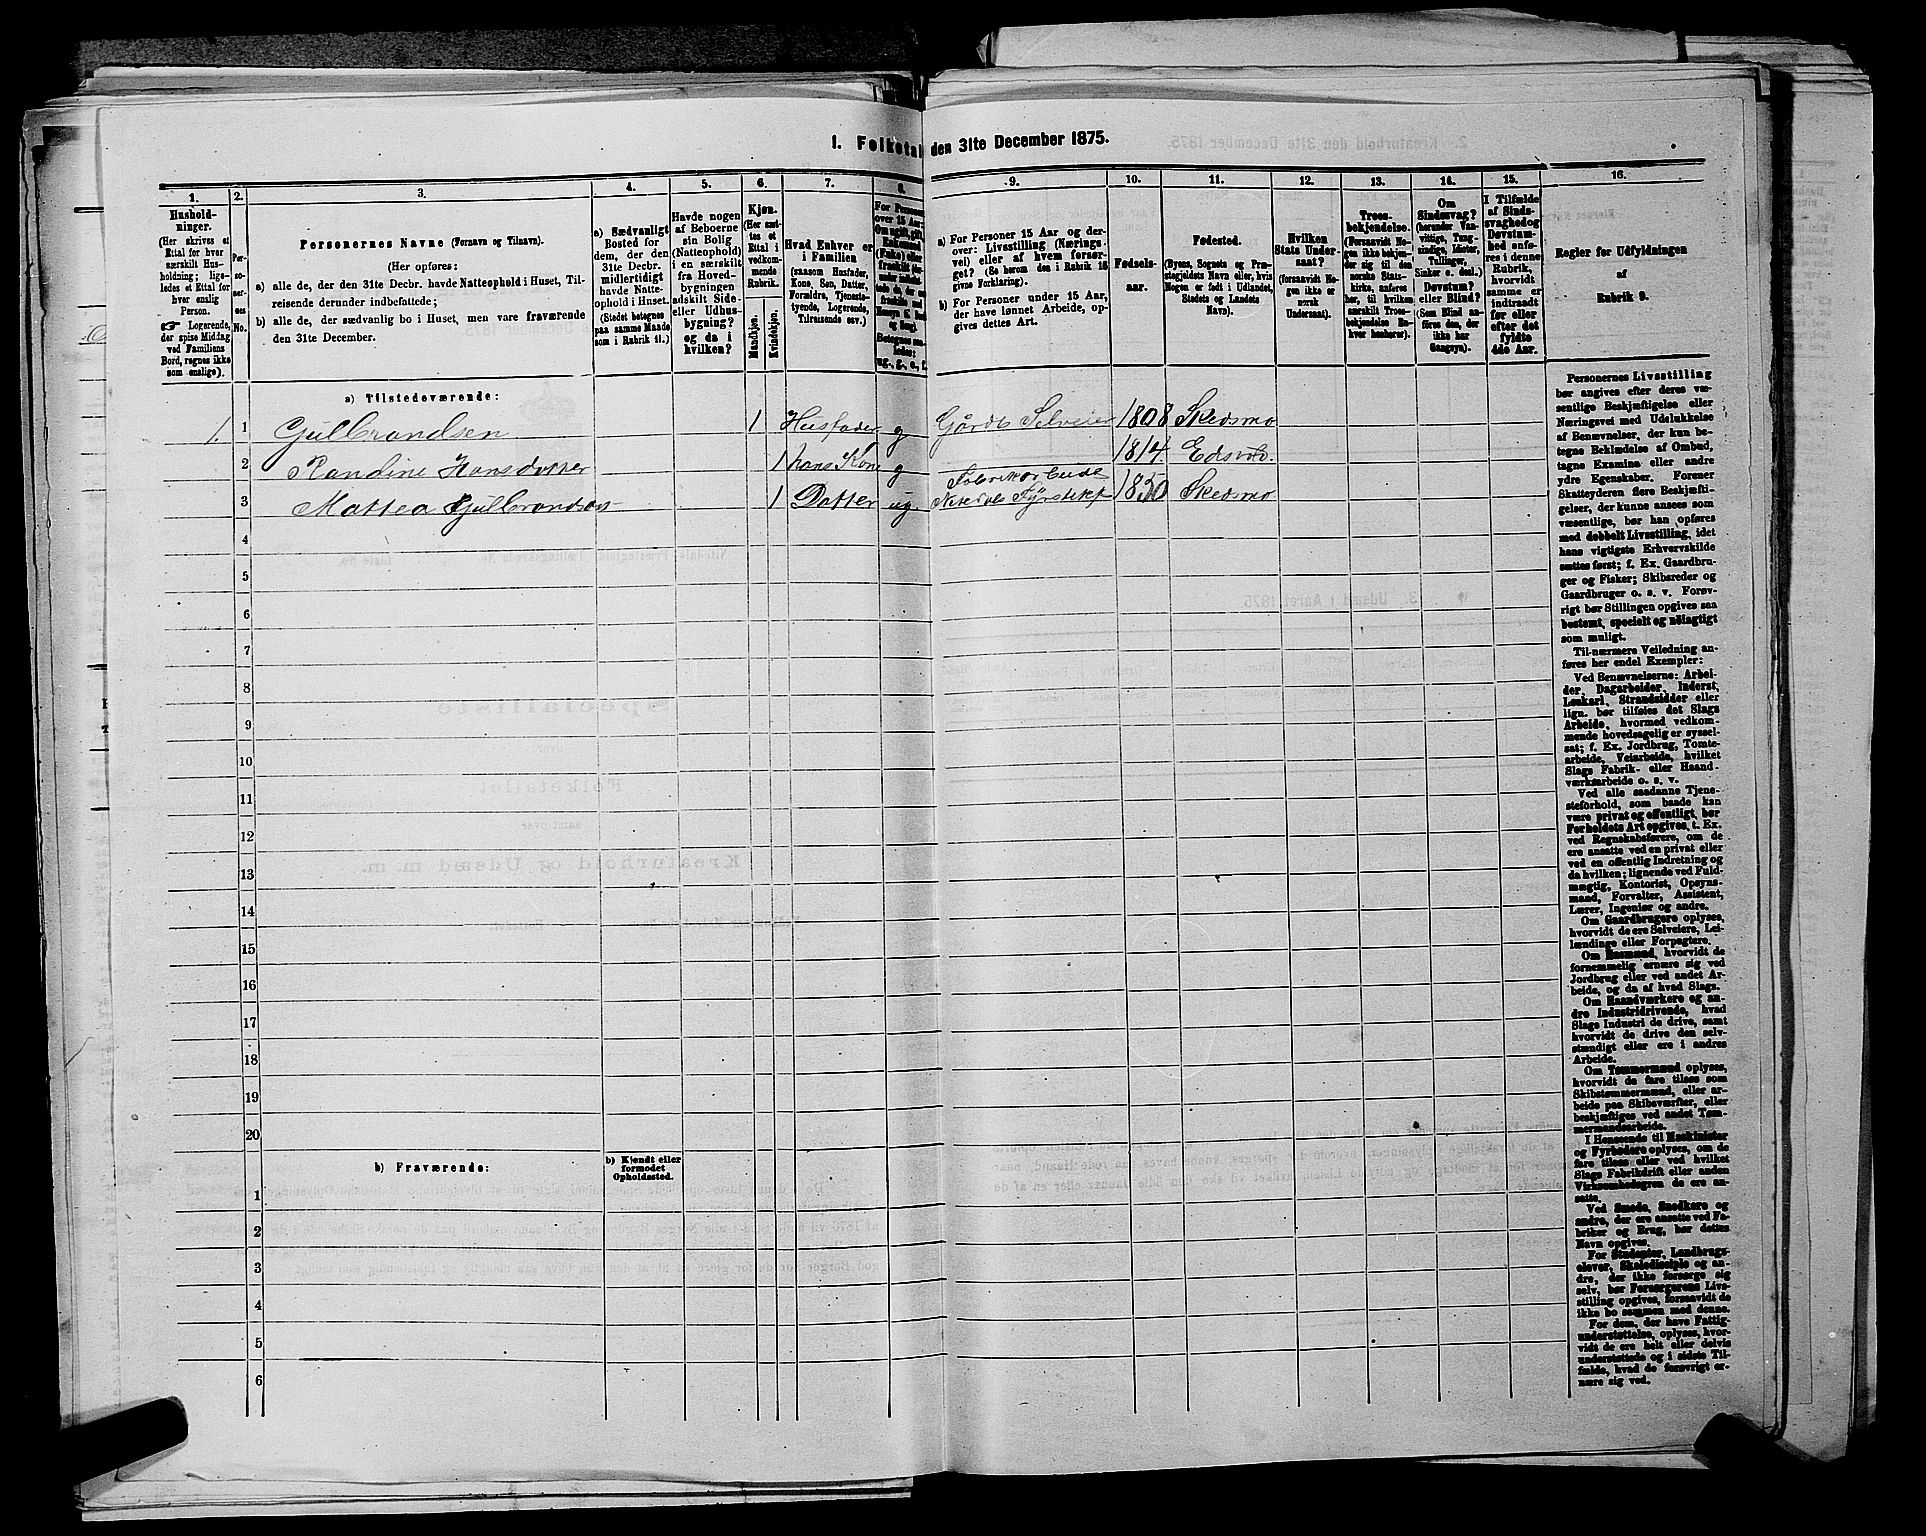 1. Folketal den 31te December 1875.
1. 2. 3. 4. 5. 6. 7. 8. 9. 10. 11. 12. 13. 14. 15. 16.
Hushold-
ninger.
(Her skrives et
Ettal for hver
særskilt Hus-
holdning; lige-
ledes et Ettal for
hver enslig
Person.
☞ Logerende,
der spise Middag
ved Familiens
Bord, regnes ikke
som enslige).
Per-
so-
ner-
nes
No.
Personernes Navne (Fornavn og Tilnavn).
(Her opføres:
a) alle de, der den 31te Decbr. havde Natteophold i Huset, Til-
reisende derunder indbefattede;
b) alle de, der sædvanlig bo i Huset, men vare fraværende
den 31te December.
a) Sædvanligt
Bosted for
dem, der den
31te Decbr.
midlertidigt
havde Natte-
ophold i Huset.
(Stedet betegnes
paa samme Maade
som i Rubrik 11.)
Havde nogen
af Beboerne
sin Bolig
(Natteophold)
i en særskilt
fra Hoved-
bygningen
adskilt Side-
eller Udhus-
bygning?
og da i
hvilken?
Kjøn.
(Her sæt-
tes et
Ettal i
vedkom-
mende
Rubrik.
Mandkjøn.
Kvindekjøn.
Hvad Enhver er
i Familien
(saasom Husfader,
Kone, Søn, Datter,
Forældre, Tjeneste-
tyende, Logerende,
Tilreisende osv.)
For Personer
over 15 Aar
ug., g., e., f.
a) For Personer 15 Aar og der-
over: Livsstilling (Nærings-
vei) eller af hvem forsør-
get? (Se herom den i Rubrik 16
givne Forklaring).
b) For Personer under 15 Aar,
der have lønnet Arbeide, op-
gives dettes Art.
Fødsels-
aar.
Fødested.
(Byens, Sognets og Præ-
stegjeldets Navn eller, hvis
Nogen er født i Udlandet,
Stedets og Landets
Navn).
Hvilken
Stats Under-
saat?
(forsaavidt No-
gen ikke er
norsk
Undersaat).
Troes-
bekjendelse.
(Forsaavidt No-
gen ikke bekjen-
der sig til den
norske Stats-
kirke, anføres
her, til hvilken
særskilt Troes-
bekjendelse En-
hver henhører).
Om
Sindssvag?
(herunder Van-
vittige, Tung-
sindige, Idioter,
Tullinger,
Sinker o. desl.)
Døvstum?
eller Blind?
(Som Blind an-
føres den, der
ikke har
Gangsyn).
I Tilfælde
af Sinds-
svaghed og
Døvstum-
hed anfø-
res i denne
Rubrik,
hvorvidt
samme er
indtraadt
før eller
efter det
fyldte
4de Aar.
Regler for Udfyldningen
af
Rubrik 9.
a) Tilstedeværende:
1. 1 Gulbrandsen 1 Husfader g Gårds Selveier 1808 Skedsmo
2 Randine Hansdatter 1 hans Kone g 1814. Edsvol.
3 Mattea Gulbrandsen 1 Datter ug. Fabrikarbeide Nitedals Fyrstikf 1850 Skedsmo
4
5
6
7
8
9
10
11
12
13
14
15
16
17
18
19
20
b) Fraværende:
b) Kjendt eller
formodet
Opholdssted.
1
2
3
4
5
6
Personernes Livsstilling
bør angives efter deres væ-
sentlige Beskjæftigelse eller
Næringsvei med Udelukkelse
af Benævnelser, der kun be-
tegne Beklædelse af Ombud,
tagne Examina eller andre
ydre Egenskaber. Forener
Skatteyderen flere Beskjæfti-
gelser, der kunne ansees som
væsentlige, bør han opføres
med dobbelt Livsstilling, idet
hans vigtigste Erhvervskilde
sættes først; f. Ex. Gaardbru-
ger og Fisker; Skibsreder og
Gaardbruger o. s. v. Forøv-
rigt bør Stillingen opgives saa
bestemt, specielt og nøiagtigt
som muligt.
Til nærmere Veiledning an-
føres her endel Exempler:
Ved Benævnelserne: Arbei-
der, Dagarbeider, Inderst,
Løskarl, Strandsidder eller
lign. bør tilføies det Slags
Arbeide, hvormed vedkom-
mende hovedsagelig er syssel-
sat; f. Ex. Jordbrug, Tomte-
arbeide, Veiarbeide, hvilket
Slags Fabrik- eller Haand-
værksarbeide o. s. v.
Ved alle saadanne Tjene-
steforhold, som baade kan
være privat og offentligt, bør
Forholdets Art opgives, t. Ex.
ved Regnskabsførere, om de
ere ansatte ved en privat eller
ved en offentlig Indretning og
da hvilken; lignende ved Fuld-
mægtig, Kontorist, Opsyns-
mand, Forvalter, Assistent,
Lærer, Ingeniør og andre.
Om Gaardbrugere oplyses,
hvorvidt de ere Selveiere, Lei-
lændinge eller Forpagtere.
Om Husmænd, hvorvidt de
fornemmelig ernære sig ved
Jordbrug eller ved andet Ar-
beide, og da af hvad Slags.
Om Haandværkere og an-
dre Industridrivende, hvad
Slags Industri de drive, samt
hvorvidt de drive den selv-
stændigt eller ere i andres
Arbeide.
Om Tømmermænd oplyses,
hvorvidt de fare tilsøs som
Skibstømmermænd, eller ar-
beide paa Skibsværfter, eller
beskjæftiges ved andet Tøm-
mermandsarbeide.
I Henseende til Maskinister
og Fyrbødere oplyses, om de
fare tilsøs eller ved hvilket
Slags Fabrikdrift eller anden
Virksomhedsgren de ere an-
satte.
Ved Smede, Snedkere og
andre, der ere ansatte ved Fa-
briker og Brug, bør dettes
Navn opgives.
For Studenter, Landbrugs-
elever, Skoledisciple og an-
dre, der ikke forsørge sig
selv, bør Forsørgerens Livs-
stilling opgives, forsaavidt de
ikke bo sammen med denne.
For dem, der have Fattig-
understøttelse, oplyses, hvor-
vidt de ere helt eller delvis
understøttede og i sidste Til-
fælde, hvad de forøvrigt er-
nære sig ved.